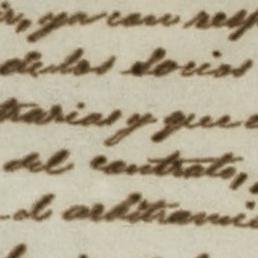 ir, ya con resp
de los Socios
trarias y que
del contrato,
el arbitramie